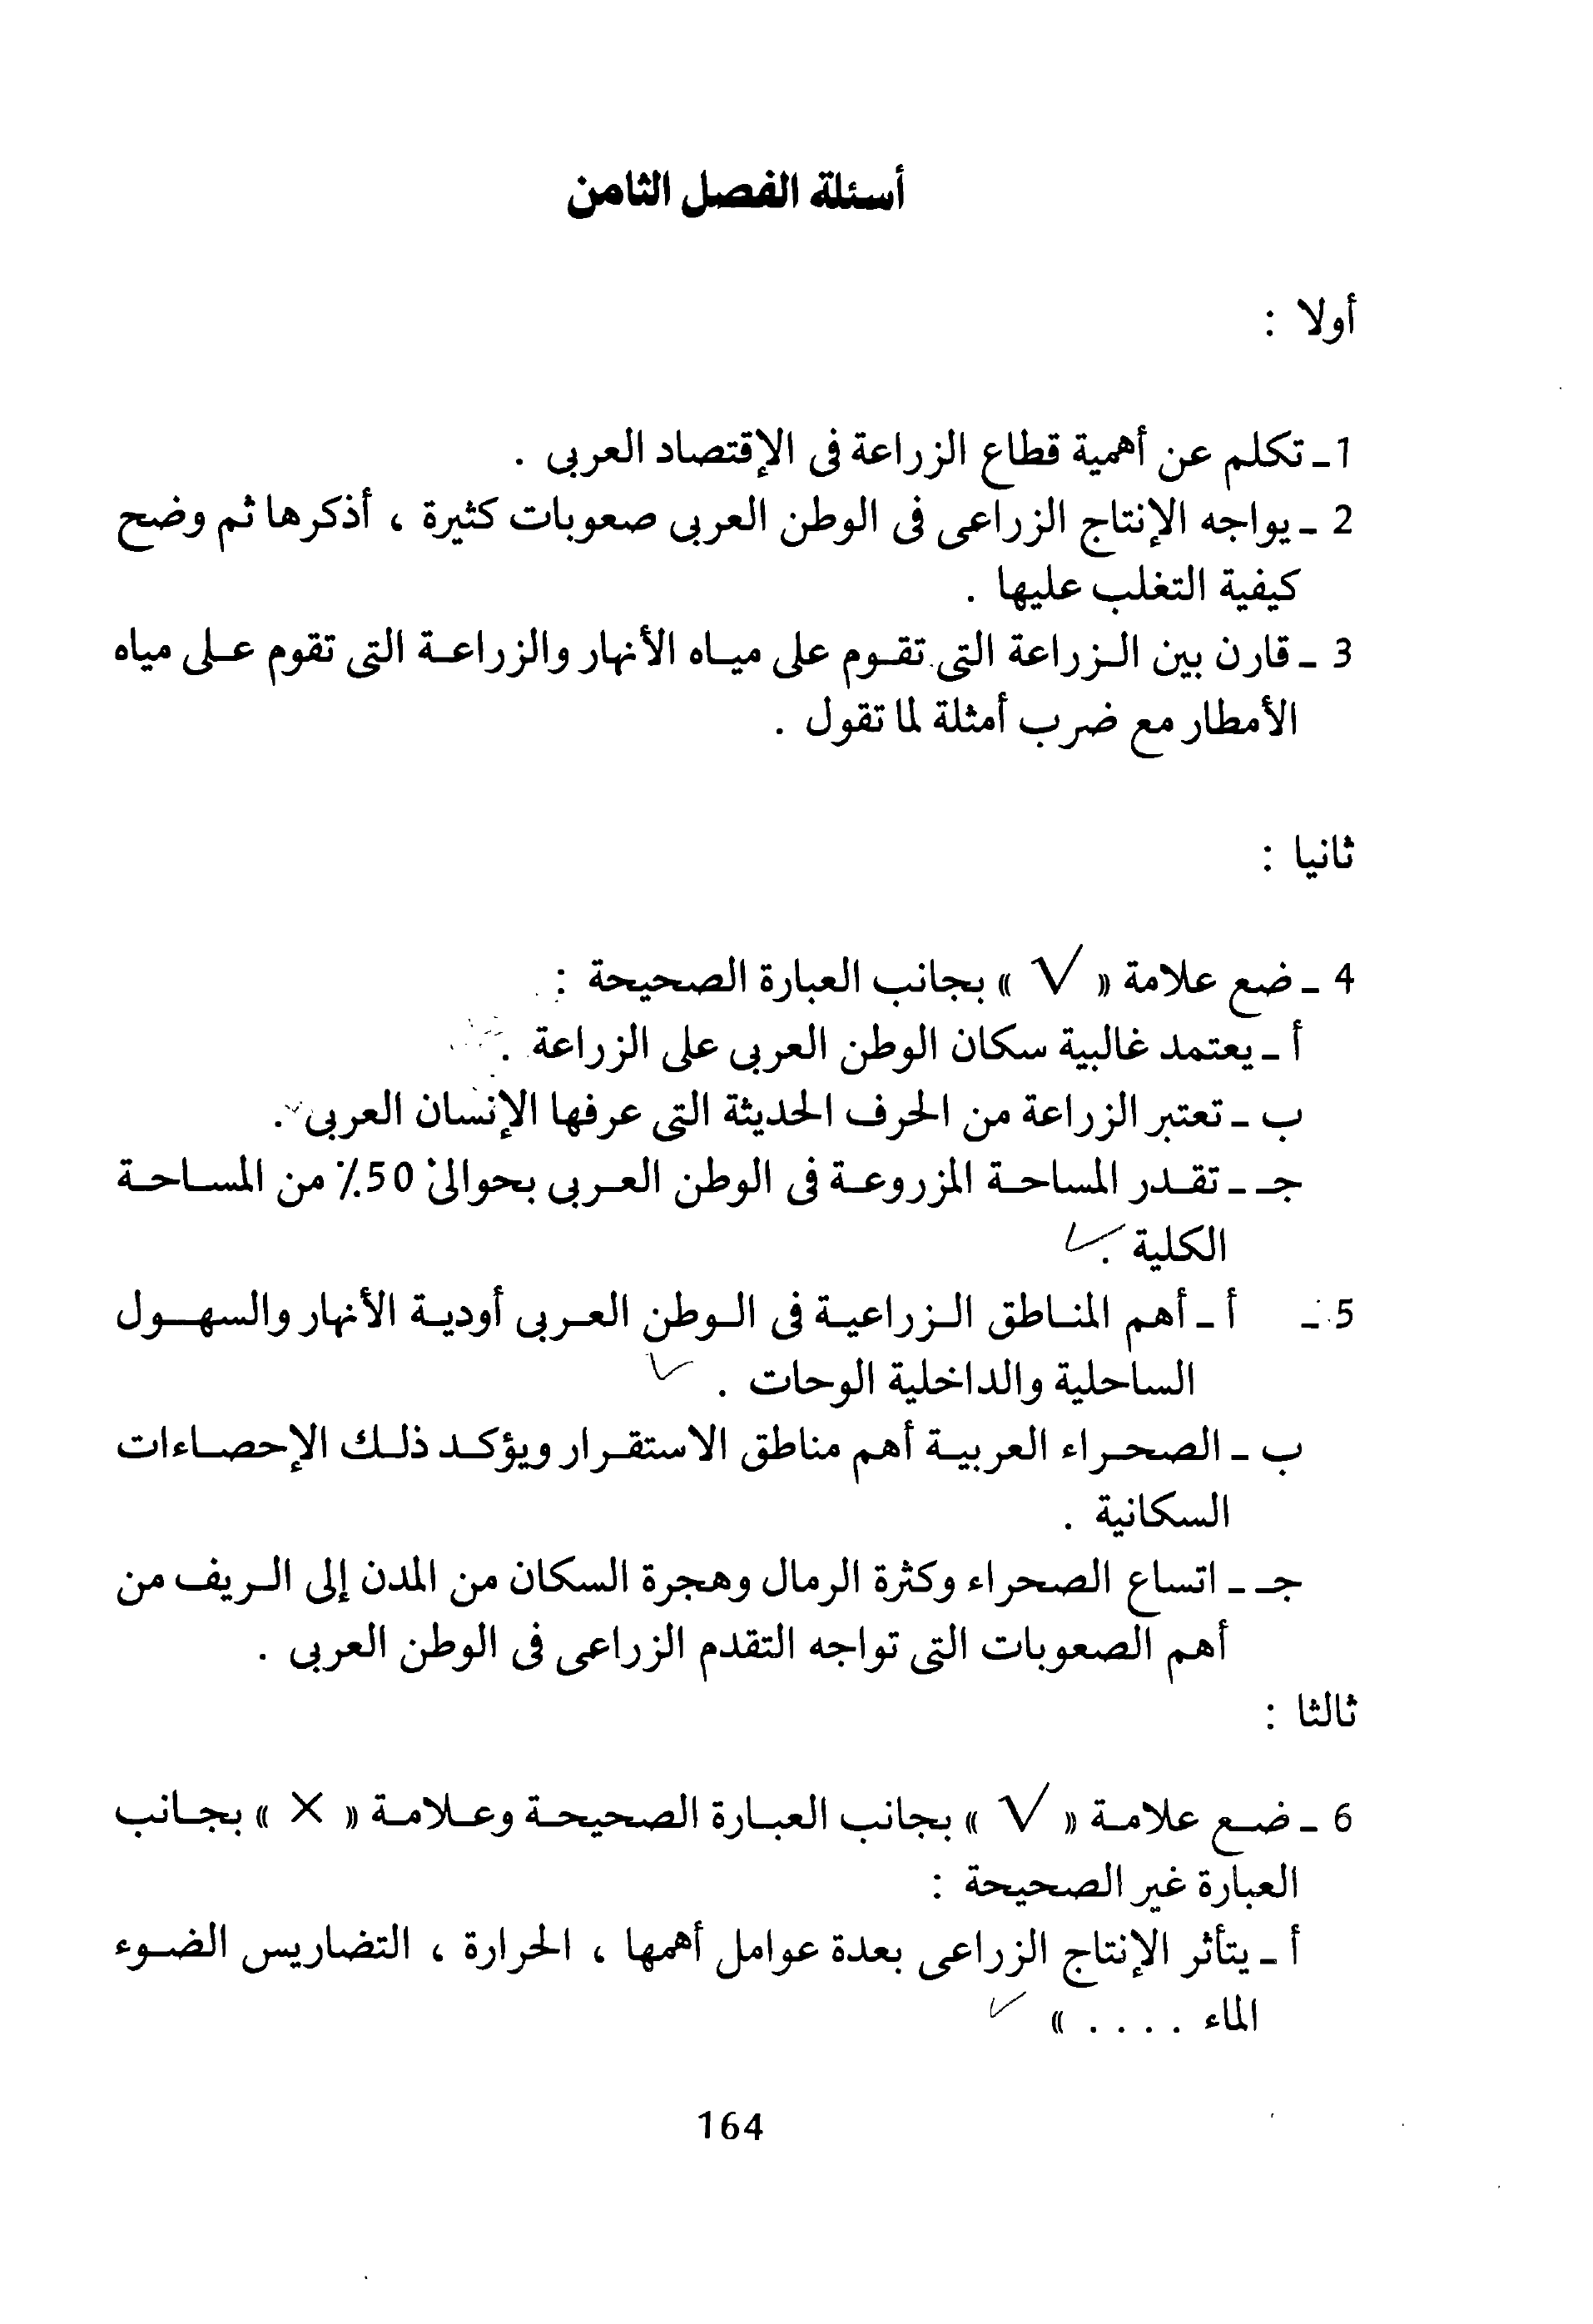 أسئلة الفصل الثامن
أولا :
1 ـ تكلم عن أهمية قطاع الزراعة فى الإقتصاد العربى .
2 ـ يواجه الإنتاج الزراعى فى الوطن العربى صعوبات كثيرة ، أذكرها ثم وضح
كيفية التغلب عليها .
3 ـ قارن بين الزراعة التى تقوم على مياه الأنهار والزراعة التى تقوم على مياه
الأمطار مع ضرب أمثلة لما تقول .
ثانيا :
4 ـ ضع علامة « √ » بجانب العبارة الصحيحة :
أ ـ يعتمد غالبية سكان الوطن العربى على الزراعة .
ب ـ تعتبر الزراعة من الحرف الحديثة التى عرفها الإنسان العربى .
جـ ـ تقدر المساحة المزروعة فى الوطن العربى بحوالى 50٪ من المساحة
الكلية . ✓
5 ـ أ ـ أهم المناطق الزراعية فى الوطن العربى أودية الأنهار والسهول
الساحلية والداخلية الوحات . ✓
ب ـ الصحراء العربية أهم مناطق الاستقرار ويؤكد ذلك الإحصاءات
السكانية .
جـ ـ اتساع الصحراء وكثرة الرمال وهجرة السكان من المدن إلى الريف من
أهم الصعوبات التى تواجه التقدم الزراعى فى الوطن العربى .
ثالثا :
6 ـ ضع علامة « √ » بجانب العبارة الصحيحة وعلامة « × » بجانب
العبارة غير الصحيحة :
أ ـ يتأثر الإنتاج الزراعى بعدة عوامل أهمها ، الحرارة ، التضاريس الضوء
الماء . . . . » ✓
164